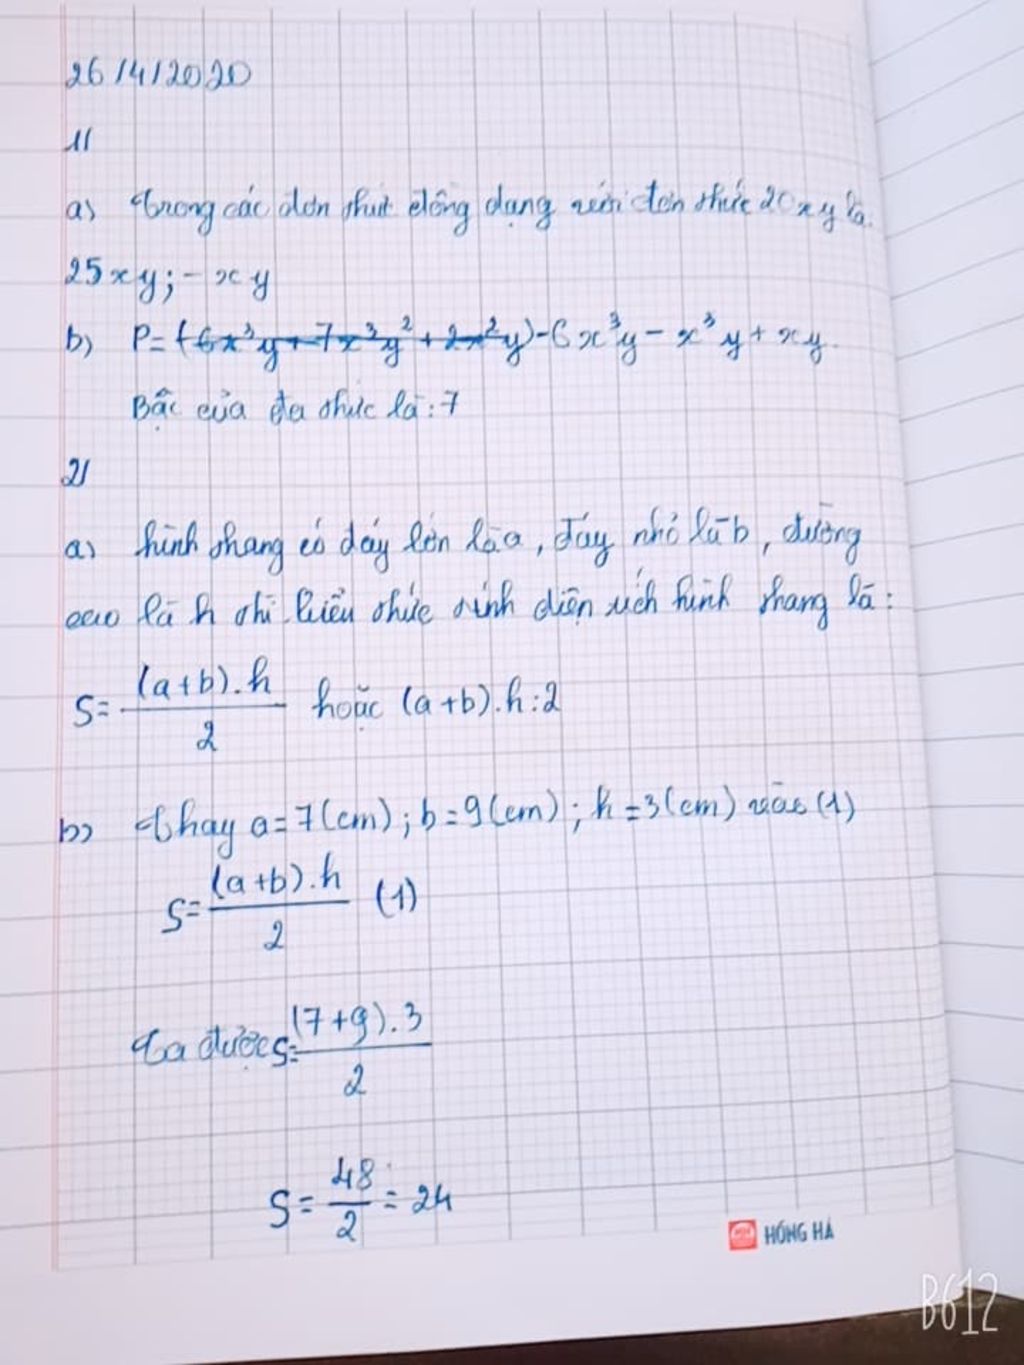 26/4/2020
1/
a) Trong các đơn thức đồng dạng với đơn thức 20xy là:
25xy; -xy
b) P= (6x³y + 7x³y² + 2x²y) - 6x³y - x³y + xy.
Bậc của đa thức là: 7
2/
a) hình thang có đáy lớn là a, đáy nhỏ là b, đường
cao là h thì biểu thức tính diện tích hình thang là:
S= (a+b).h / 2 hoặc (a+b).h:2
b) Thay a=7(cm); b=9(cm); h=3(cm) vào (1)
S= (a+b).h / 2 (1)
Ta được S= (7+9).3 / 2
S= 48/2 = 24
HỒNG HÀ
B612